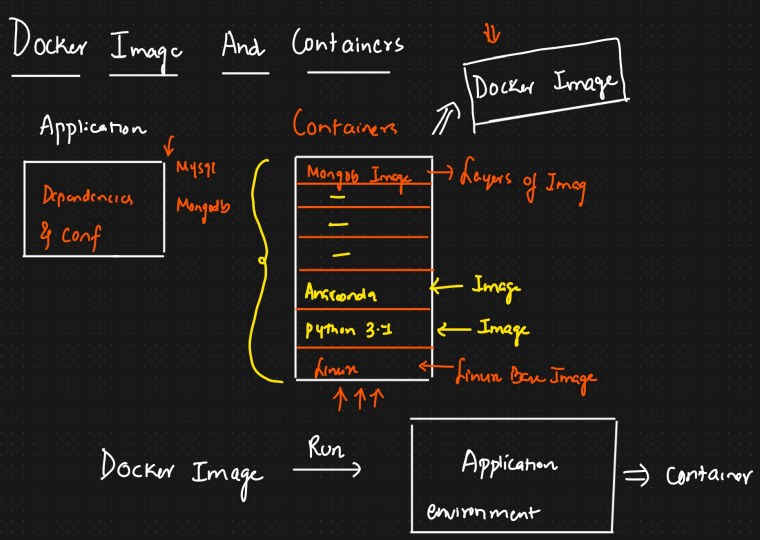 Docker Image And Containers
Docker Image
Application
Containers
Mysql
Mongodb
Dependencies
& Conf
Mongob Image
Layers of Imag
Anaconda
Image
python 3.1
Image
Linux
Linux Base Image
Docker Image
Run
Application
environment
Container